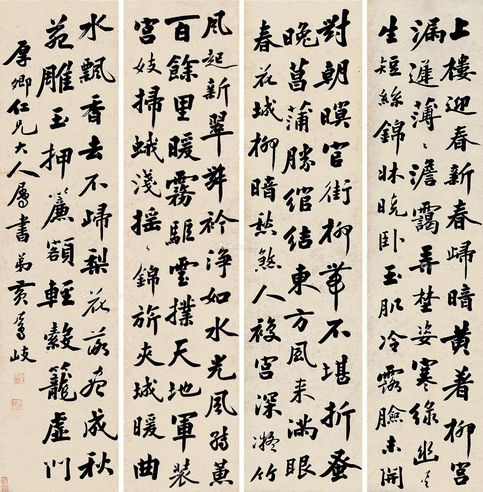 上樓迎春新春歸暗黃著柳宮
漏遲薄〻澹靄弄埜姿寒綠幽風
生短絲錦牀曉臥玉肌冷露臉未開
對朝暝官街柳帶不堪折蚤
晚菖蒲勝綰結東方風來滿眼
春花城柳暗愁煞人複宮深殿竹
風起新翠舞衿淨如水光風轉蕙
百餘里暖霧驅雲撲天地軍裝
宮妓掃蛾淺搖〻錦旂夾城暖曲
水飄香去不歸梨花落盡成秋
苑雕玉押簾額輕縠籠虛門
厚卿仁兄大人屬書弟黃鳳岐